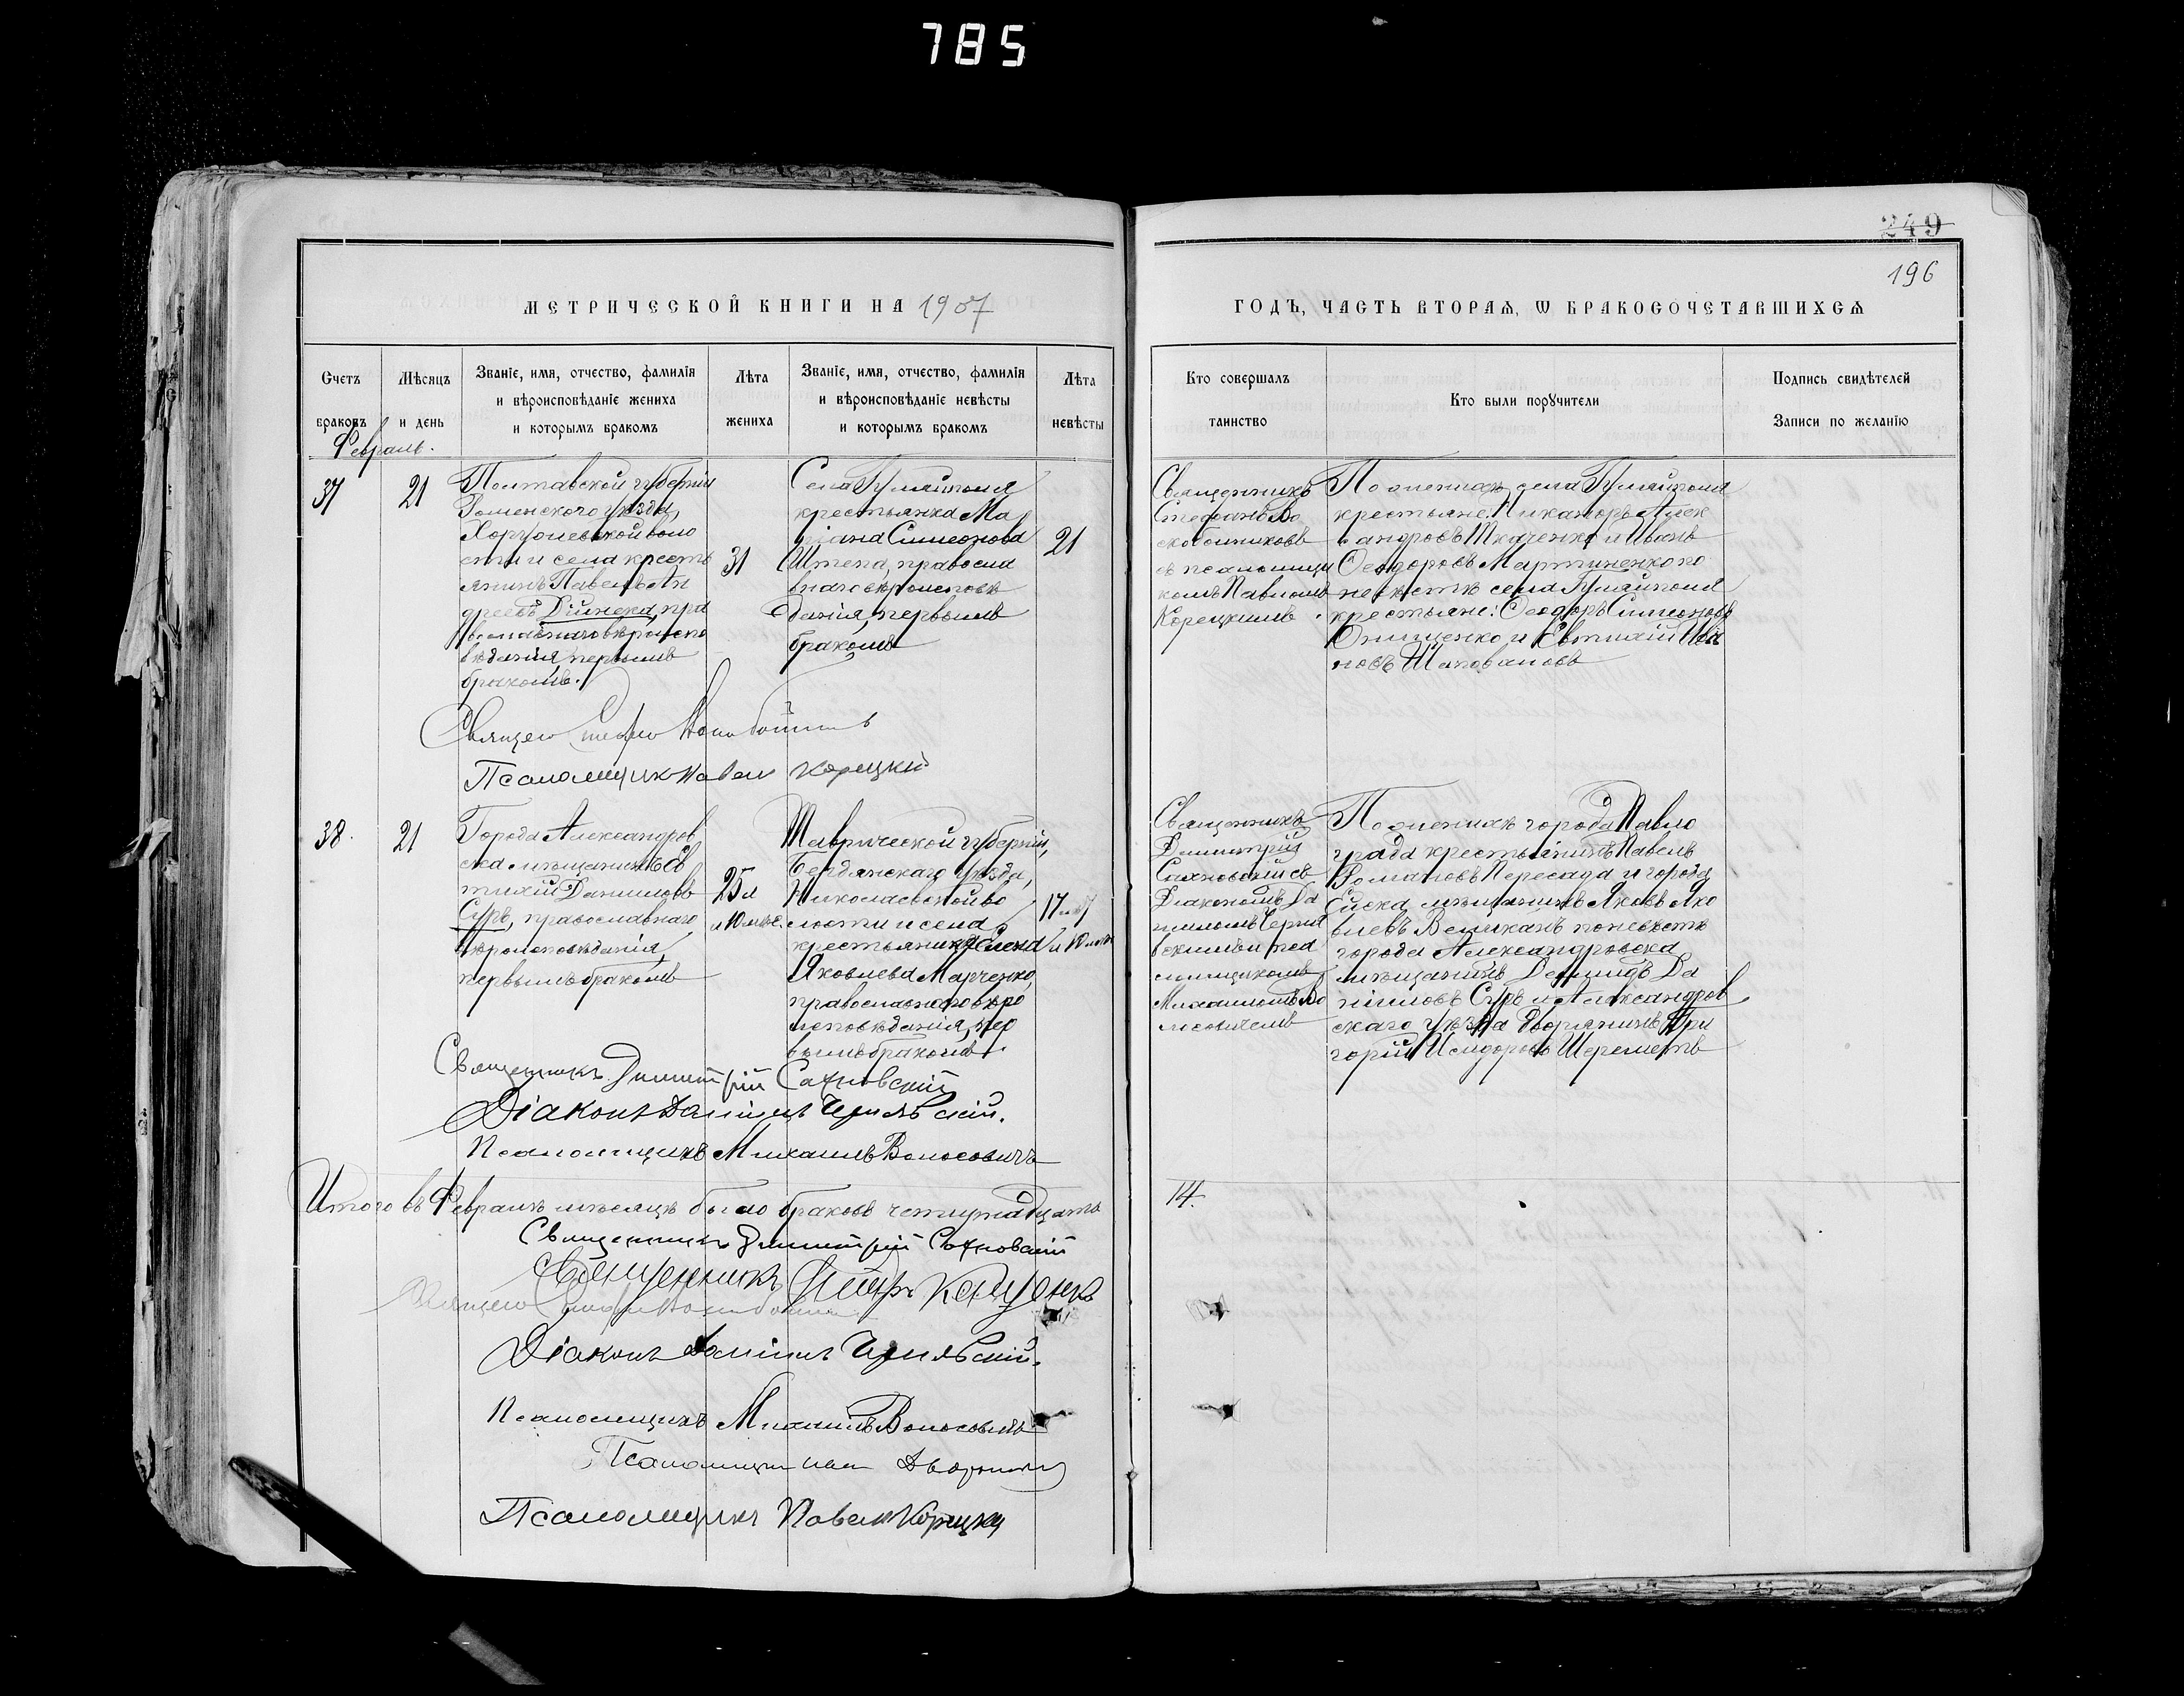 785
249
196
МЕТРИЧЕСКОЙ КНИГИ НА 1907
ГОДЪ, ЧАСТЬ ВТОРАЯ, Ѡ БРАКОСОЧЕТАВШИХСЯ
Счетъ
браковъ
Мѣсяцъ
и день
Званіе, имя, отчество, фамилія
и вѣроисповѣданіе жениха
и которымъ бракомъ
Лѣта
жениха
Званіе, имя, отчество, фамилія
и вѣроисповѣданіе невѣсты
и которымъ бракомъ
Лѣта
невѣсты
Кто совершалъ
таинство
Кто были поручители
Подпись свидѣтелей
Записи по желанію
Февраль.
37
21
Полтавской губерніи
Роменского уѣзда,
воло
сти и села кресть
янинъ Павелъ Ан
дреевъ Дійнека, пра
вославнаго вѣроиспо
вѣданія, первымъ
бракомъ.
31
Села Гуляйполя
крестьянка Ма
ріана Симеонова
Штепа, правосла
внаго вѣроисповѣ
данія, первымъ
бракомъ
21
Священникъ
Стефанъ Во
скобойниковъ
съ псаломщи
комъ Павломъ
Корецкимъ
По женихѣ села Гуляйполя
крестьяне: Никаноръ Алек
сандровъ Ткаченко и Иванъ
Ѳеодоровъ Мартыненко по
невѣстѣ села Гуляйполя
крестьяне: Ѳеодоръ Симеоновъ
Онищенко и Евтихій Ива
новъ Шаповаловъ
Псаломщикъ Павелъ Корецкій
38.
21
Города Александров
ска мѣщанинъ Ев
тихій Даниловъ
Суръ, православнаго
вѣроисповѣданія,
первымъ бракомъ
25 л
и 10 мѣс.
Таврической губерніи,
Бердянскаго уѣзда,
Николаевской во
лости и села
крестьянка Елена
Яковлева Марченко,
православнаго вѣро
исповѣданія, пер
вымъ бракомъ.
17 лѣт
и 10 мѣс
Священникъ
Димитрій
Сахновскій съ
Діакономъ Да
ніиломъ Черняв
скимъ и пса
ломщикомъ
Михаиломъ Во
лосовичемъ
По женихѣ города Павло
града крестьянинъ Павелъ
Романовъ Пересада и города
Ейска мѣщанинъ Яковъ Яко
влевъ Великанъ по невѣстѣ
города Александровска
мѣщанинъ Демидъ Да
ніиловъ Суръ и Александров
скаго уѣзда дворянинъ Гри
горій Исидоровъ Шереметъ
Священникъ Димитрій Сахновскій
Діаконъ Даніилъ Чернявскій.
Псаломщикъ Михаилъ Волосовичъ
Итого въ Февралѣ мѣсяцѣ было браковъ четырнадцать
14.
Священникъ Димитрій Сахновскій
Священникъ
Діаконъ Даніилъ Чернявскій.
Псаломщикъ Михаилъ Волосовичъ
Псаломщикъ
Псаломщикъ Павелъ Корецкій